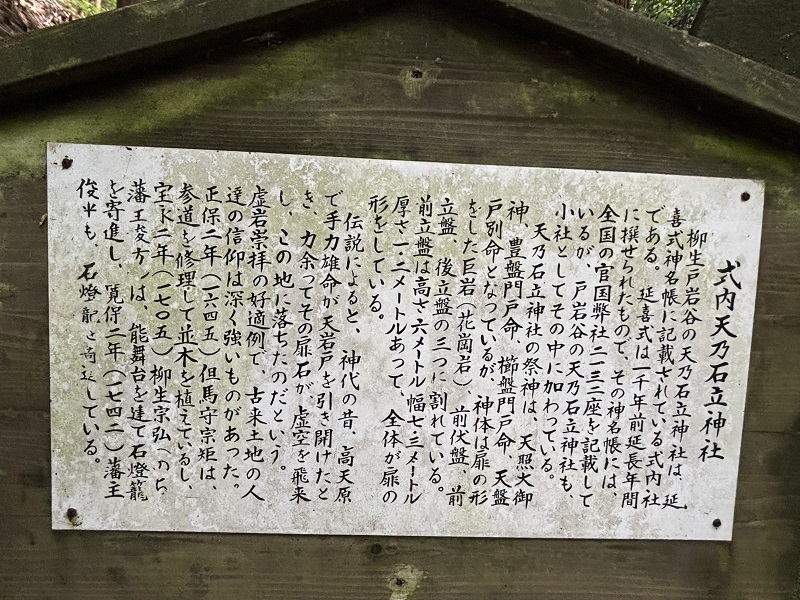 式内天乃石立神社
柳生戸岩谷の天乃石立神社は、延
喜式神名帳に記載されている式内社
である。延喜式は一千年前延長年間
に撰せられたもので、その神名帳には
全国の官国弊社二一三二座を記載して
いるが、戸岩谷の天乃石立神社も、
小社としてその中に加わっている。
天乃石立神社の祭神は、天照大御
神、豊盤門戸命、櫛盤門戸命、天盤
戸別命となっているが、神体は扉の形
をした巨岩(花崗岩)、前伏盤、前
立盤、後立盤の三つに割れている。
前立盤は高さ六メートル幅七・三メートル
厚さ一・二メートルあって、全体が扉の
形をしている。
伝説によると、神代の昔、高天原
で手力雄命が天岩戸を引き開けたと
き、力余ってその扉石が、虚空を飛来
し、この地に落ちたのだという。
虚岩崇拝の好適例で、古来土地の人
達の信仰は深く強いものがあった。
正保二年(一六四五)但馬守宗矩は、
参道を修理して並木を植えているし、
宝永二年(一七〇五)柳生宗弘(のち
藩主俊方)は、能舞台を建て石燈籠
を寄進し、寛保二年(一七四二)藩主
俊平も、石燈籠を寄進している。